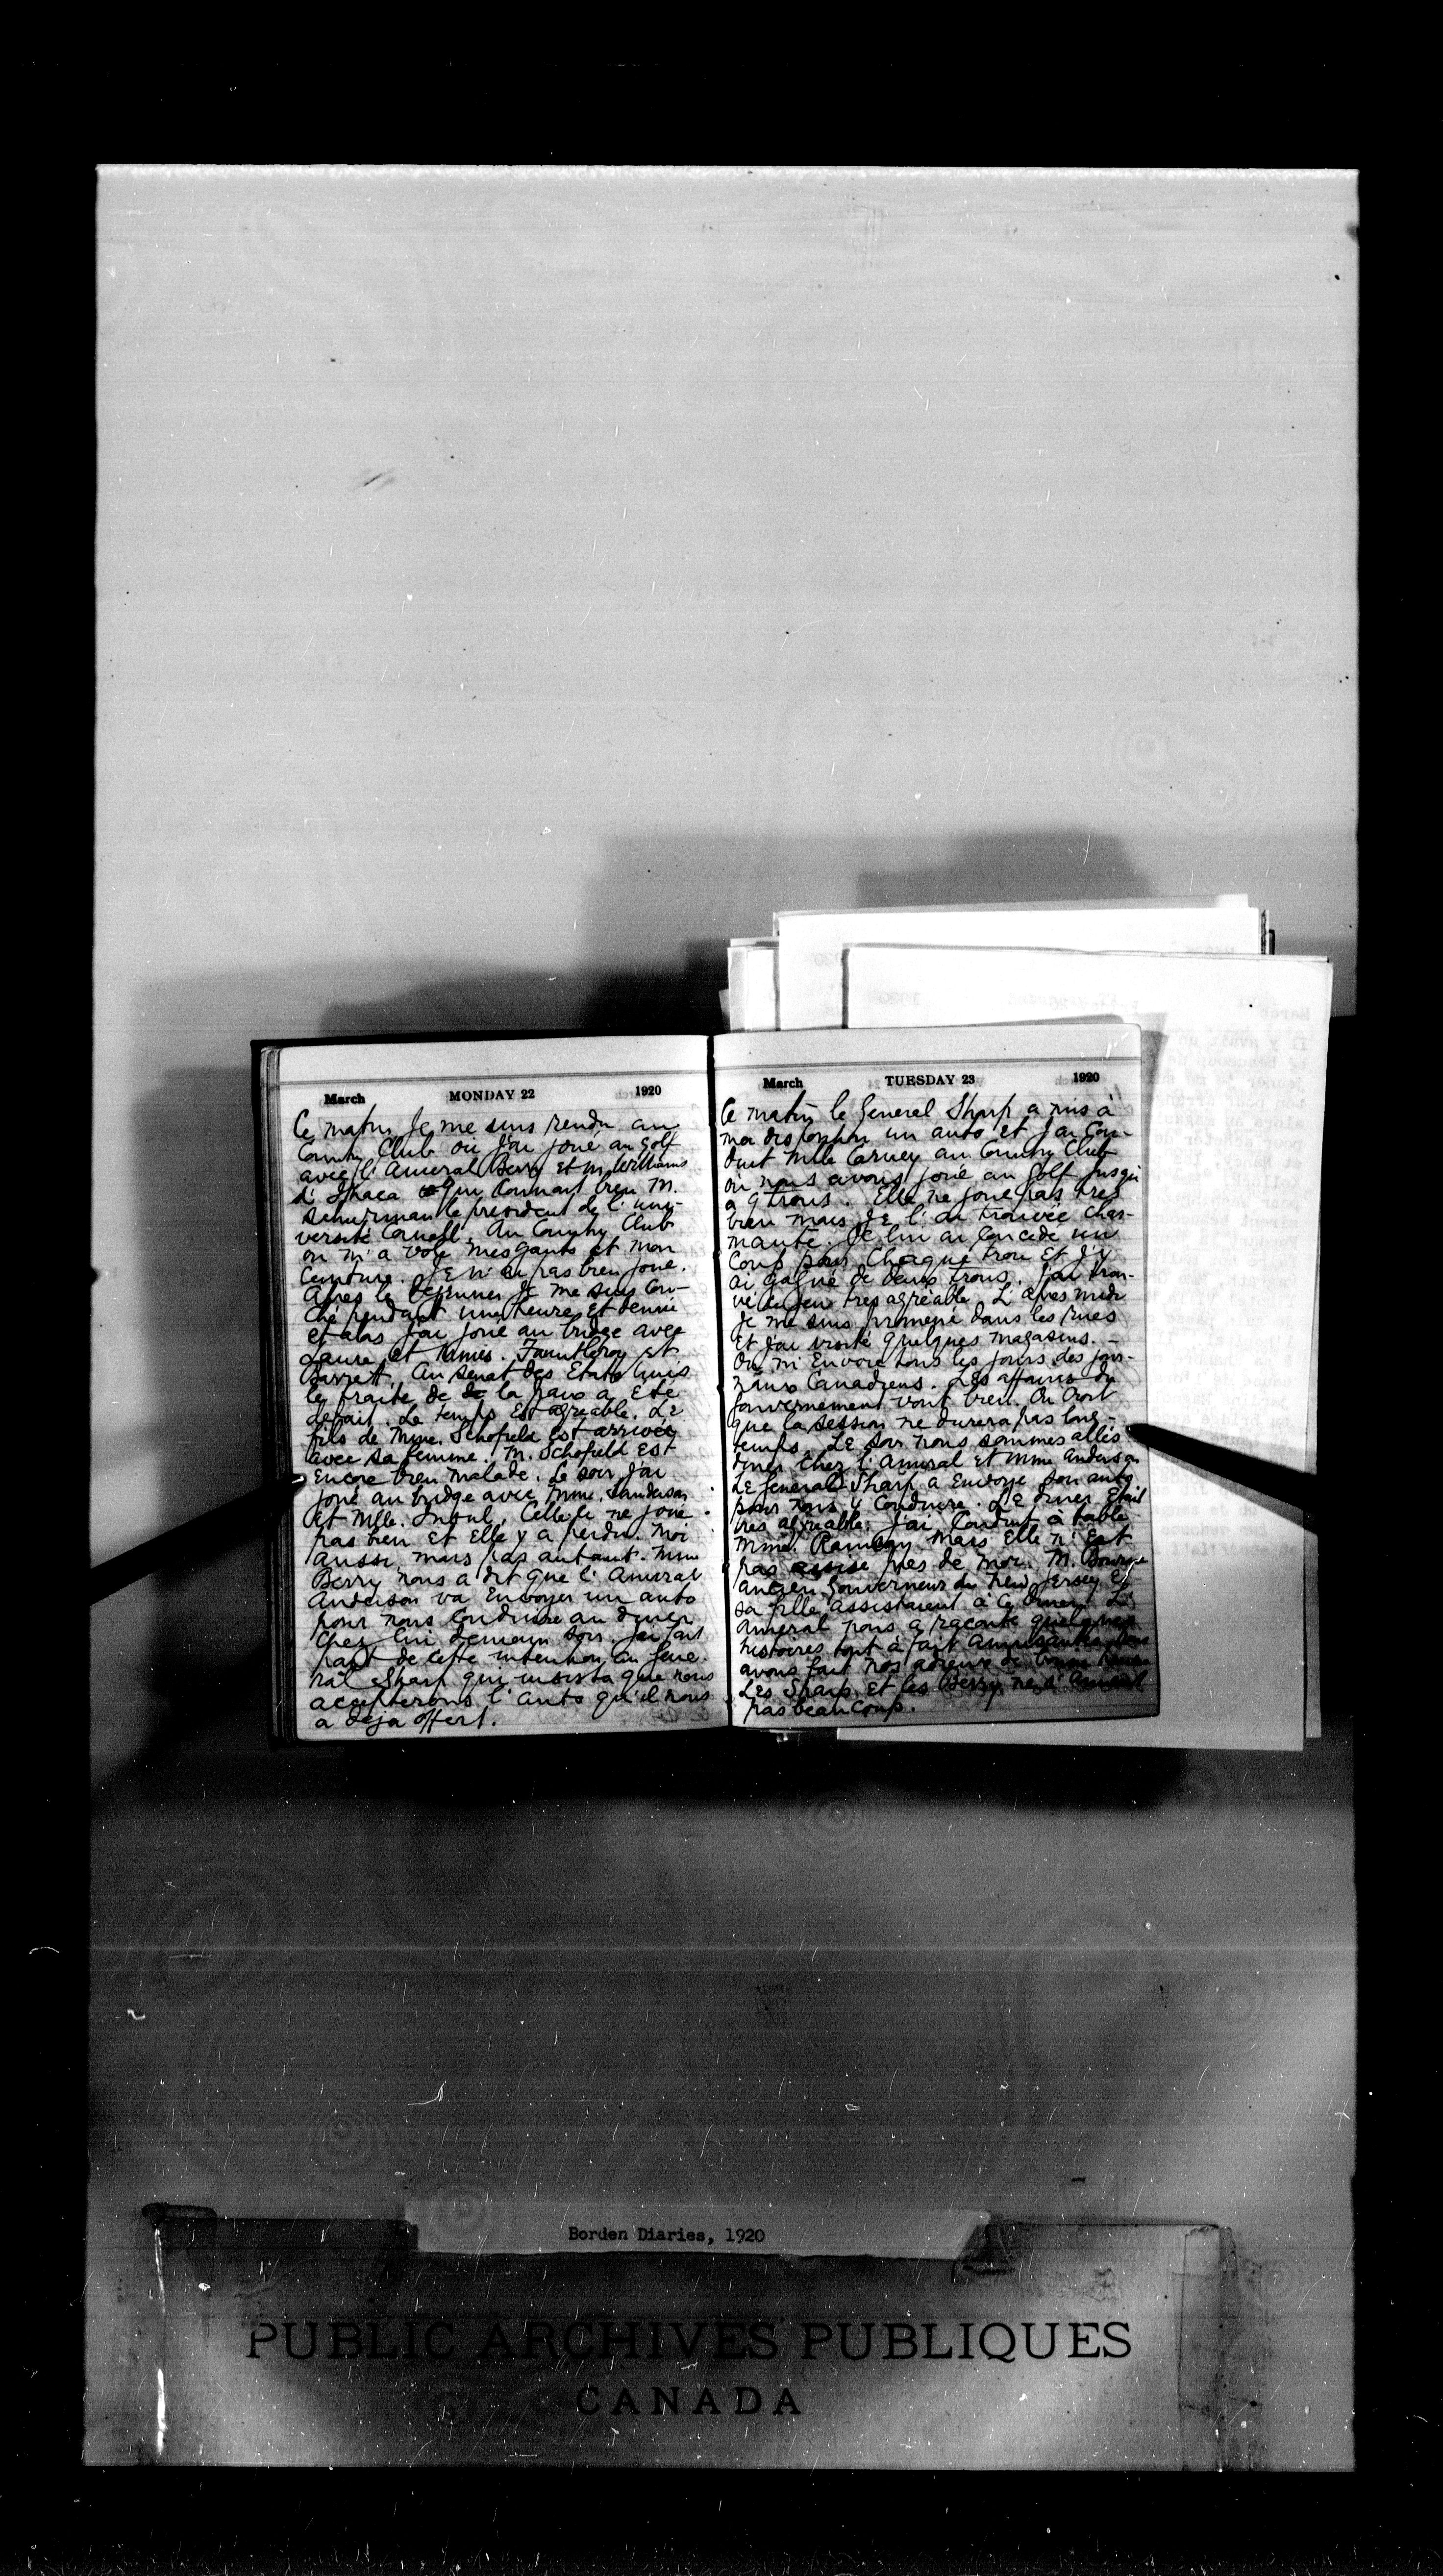 March MONDAY 22 1920
Ce matin je me suis rendu au
Country Club où j'ai joué au golf
avec l'Amiral Berry et M. Williams
d'Ithaca qui connait bien M.
Schurman le president de l'uni-
versité Cornell. Au Country Club
on m'a volé mes gants et mon
ceinture. Je n'ai pas bien joué.
Apres le dejeuner je me suis cou-
ché pendant une heure et demie
et alas j'ai joué au bridge avec
Laura et Mmes. Fauntleroy et
Barrett. Au senat des Etats Unis
le traité de la paix a été
defait. Le temps est agreable. Le
fils de Mme. Schofield est arrivée
avec sa femme. M. Schofield est
encore bien malade. Le soir j'ai
joué au bridge avec Mme. Sanderson
et Mlle. Celle ci ne joue
pas bien et elle y a perdu. Moi
aussi mais pas autant. Mme
Berry nous a dit que l'Amiral
Anderson va envoyer un auto
pour nous conduire au diner
chez lui demain soir. J'ai fait
part de cette intention au Gene-
ral Sharp qui insista que nous
accepterons l'auto qu'il nous
a deja offert.
March TUESDAY 23 1920
Ce matin le General Sharp a mis à
ma disposition un auto et j'ai con-
duit Mlle Carney au Country Club
où nous avons joué au golf jusqu'
a 9 trous. Elle ne joue pas tres
bien mais je l'ai trouvée char-
mante. Je lui ai concédé un
coup pour chaque trou et j'y
ai gagné de deux trous. J'ai trou-
vé le jeu tres agréable. L'apres midi
je me suis promené dans les rues
et j'ai visité quelques magasins.
On m'envoie tous les jours des jour-
naux Canadiens. Les affaires du
gouvernement vont bien. On croit
que la session ne durera pas long-
temps. Le soir nous sommes allés
diner chez l'Amiral et Mme Anderson
Le General Sharp a envoyé son auto
pour nous y conduire. Le diner etait
tres agréable. J'ai conduit à table
Mme. Ramsay mais elle n'est
pas assise pres de moi. M.
ancien Gouverneur du New Jersey et
sa fille assistaient à ce diner. L'
Amiral nous a raconté quelques
histoires tout à fait amusantes. Nous
avons fait nos adieux de bonne heure
Les Sharp et les Berry ne s'aiment
pas beaucoup.
Borden Diaries, 1920
PUBLIC ARCHIVES PUBLIQUES
CANADA